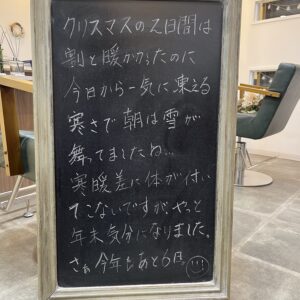 クリスマスの2日間は
割と暖かかったのに
今日から一気に凍える
寒さで朝は雪が
舞ってましたね…
寒暖差に体が付い
てこないですが、やっと
年末気分になりました。
さぁ今年もあと6日